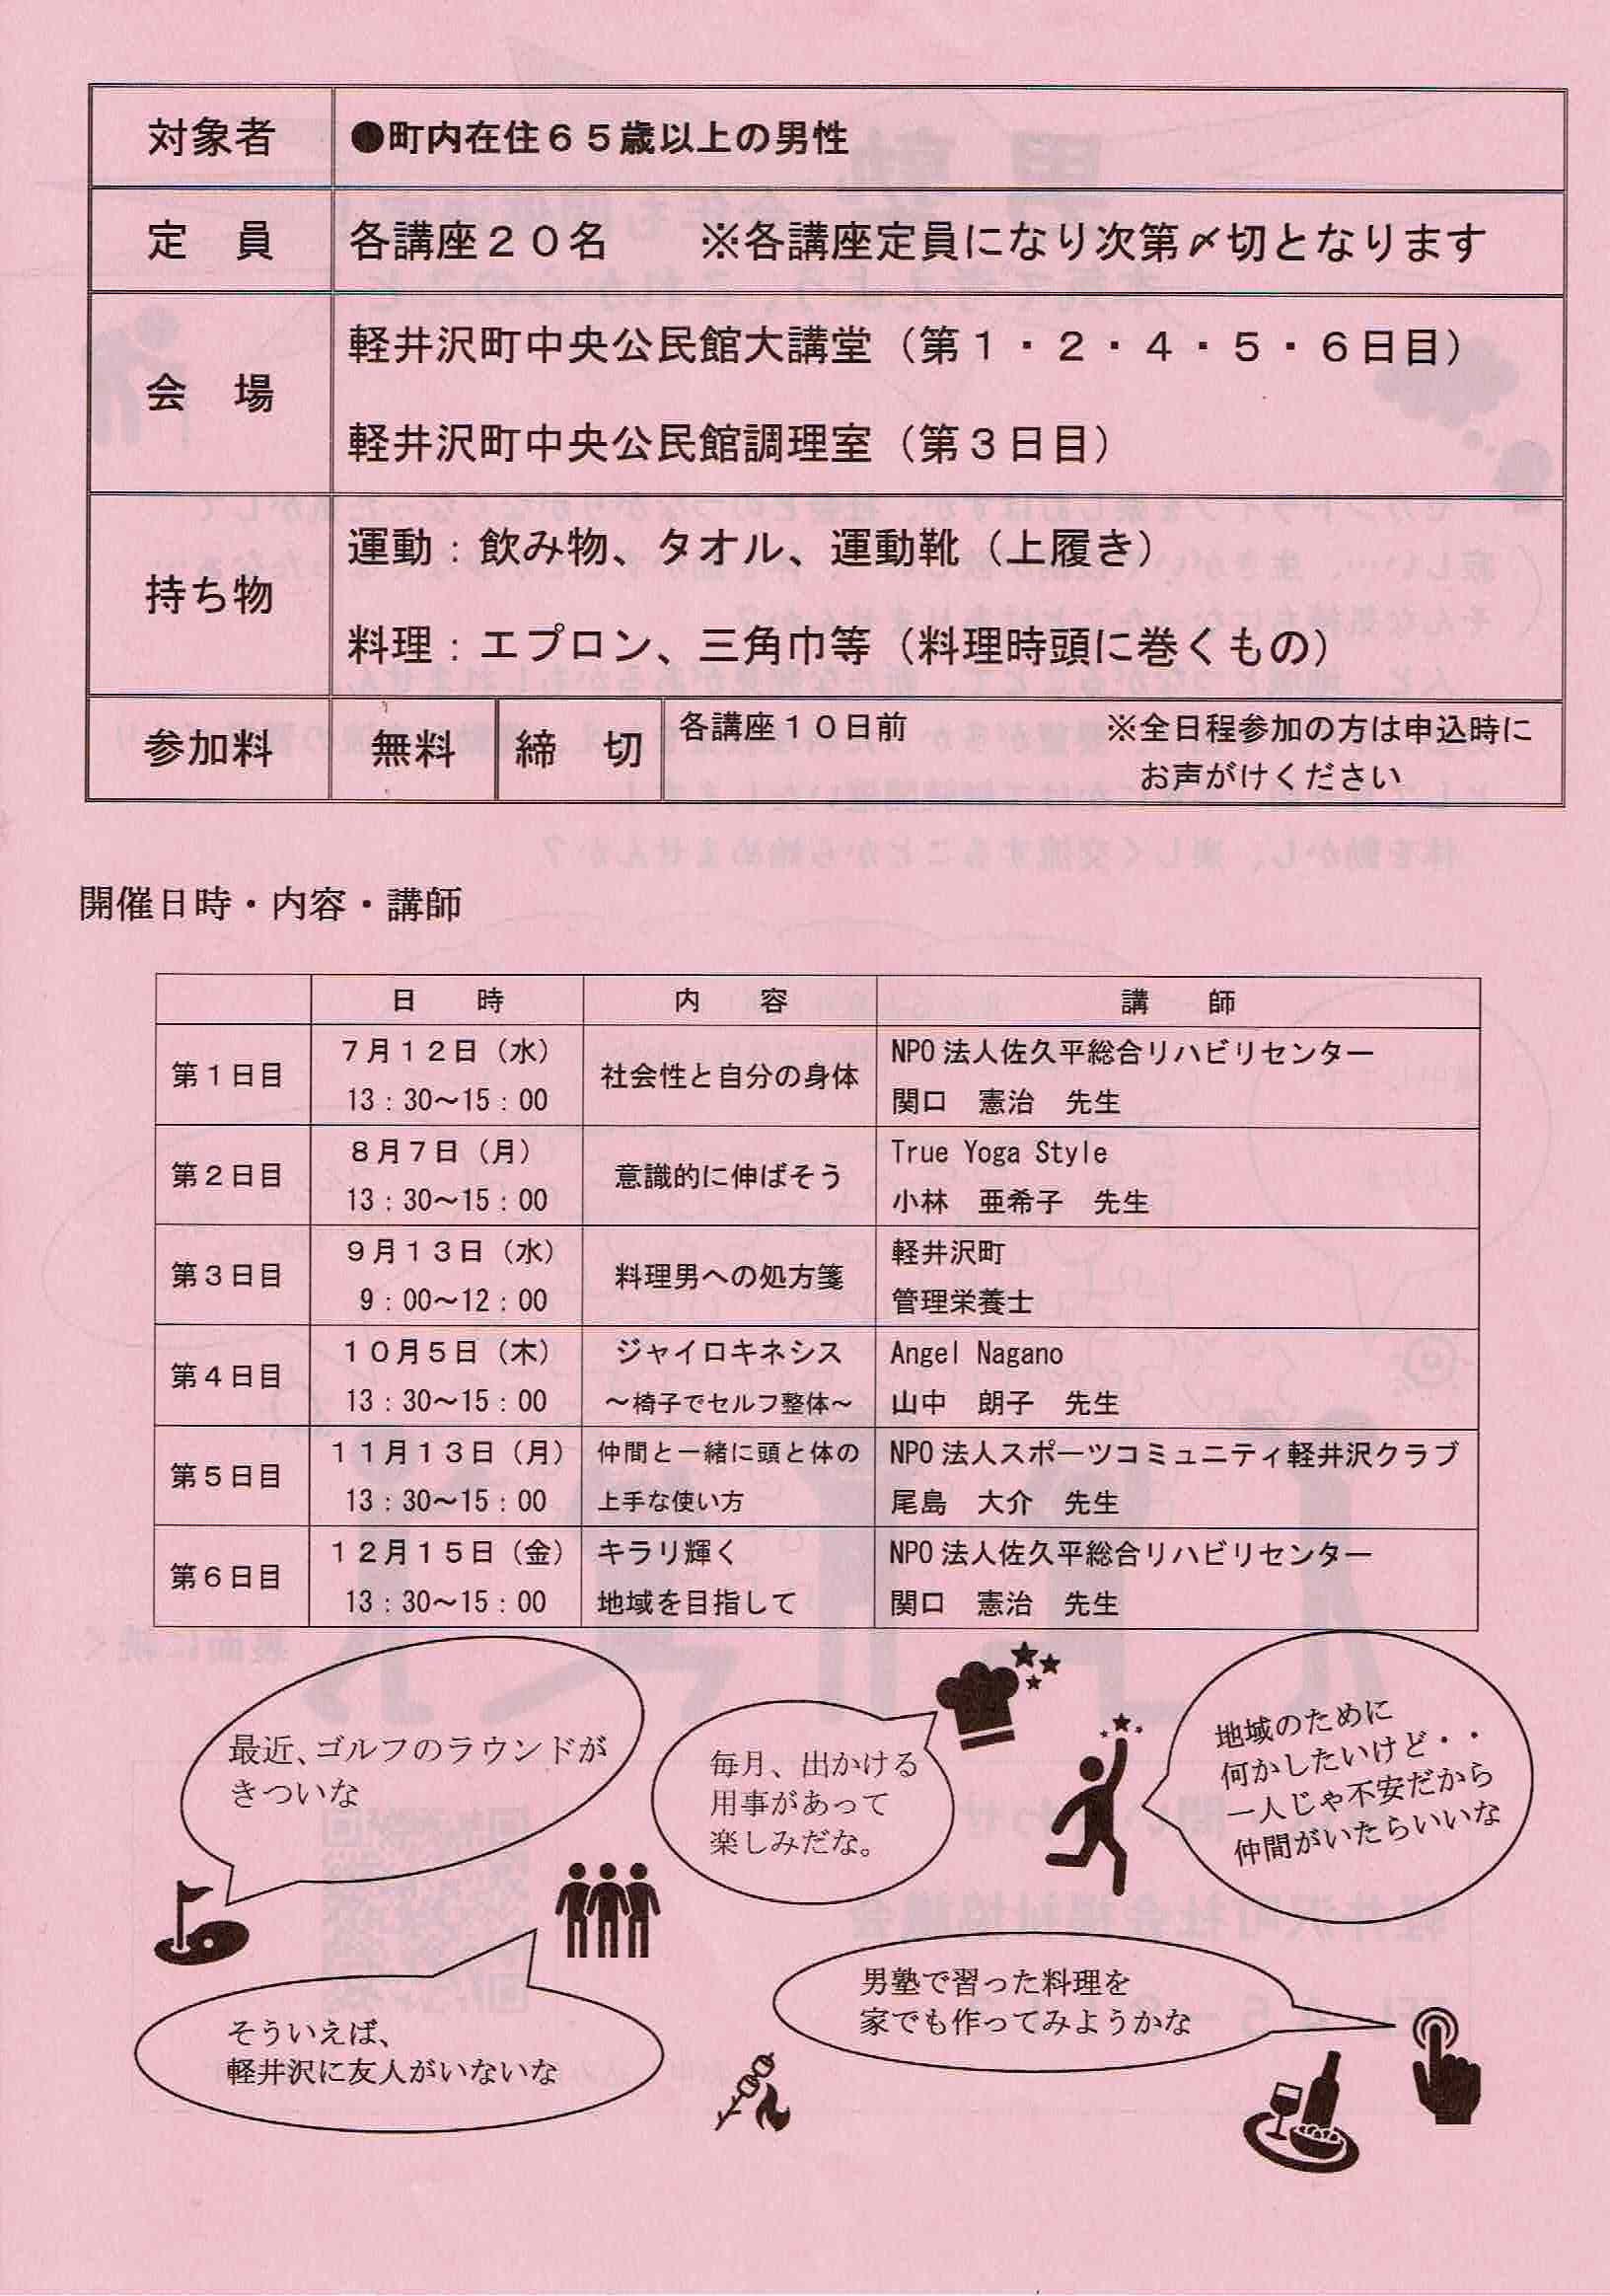 対象者 ●町内在住６５歳以上の男性
定　員 各講座２０名　　※各講座定員になり次第〆切となります
会　場 軽井沢町中央公民館大講堂（第１・２・４・５・６日目）
軽井沢町中央公民館調理室（第３日目）
持ち物 運動：飲み物、タオル、運動靴（上履き）
料理：エプロン、三角巾等（料理時頭に巻くもの）
参加料 無料 締　切 各講座１０日前　※全日程参加の方は申込時に
お声がけください
開催日時・内容・講師
日　時 内　容 講　師
第１日目 ７月１２日（水） 社会性と自分の身体 NPO法人佐久平総合リハビリセンター
13：30～15：00 関口　憲治　先生
第２日目 ８月７日（月） 意識的に伸ばそう True Yoga Style
13：30～15：00 小林　亜希子　先生
第３日目 ９月１３日（水） 料理男への処方箋 軽井沢町
9：00～12：00 管理栄養士
第４日目 １０月５日（木） ジャイロキネシス Angel Nagano
13：30～15：00 ～椅子でセルフ整体～ 山中　朗子　先生
第５日目 １１月１３日（月） 仲間と一緒に頭と体の NPO法人スポーツコミュニティ軽井沢クラブ
13：30～15：00 上手な使い方 尾島　大介　先生
第６日目 １２月１５日（金） キラリ輝く NPO法人佐久平総合リハビリセンター
13：30～15：00 地域を目指して 関口　憲治　先生
最近、ゴルフのラウンドが
きついな
毎月、出かける
用事があって
楽しみだな。
地域のために
何かしたいけど・・
一人じゃ不安だから
仲間がいたらいいな
そういえば、
軽井沢に友人がいないな
男塾で習った料理を
家でも作ってみようかな